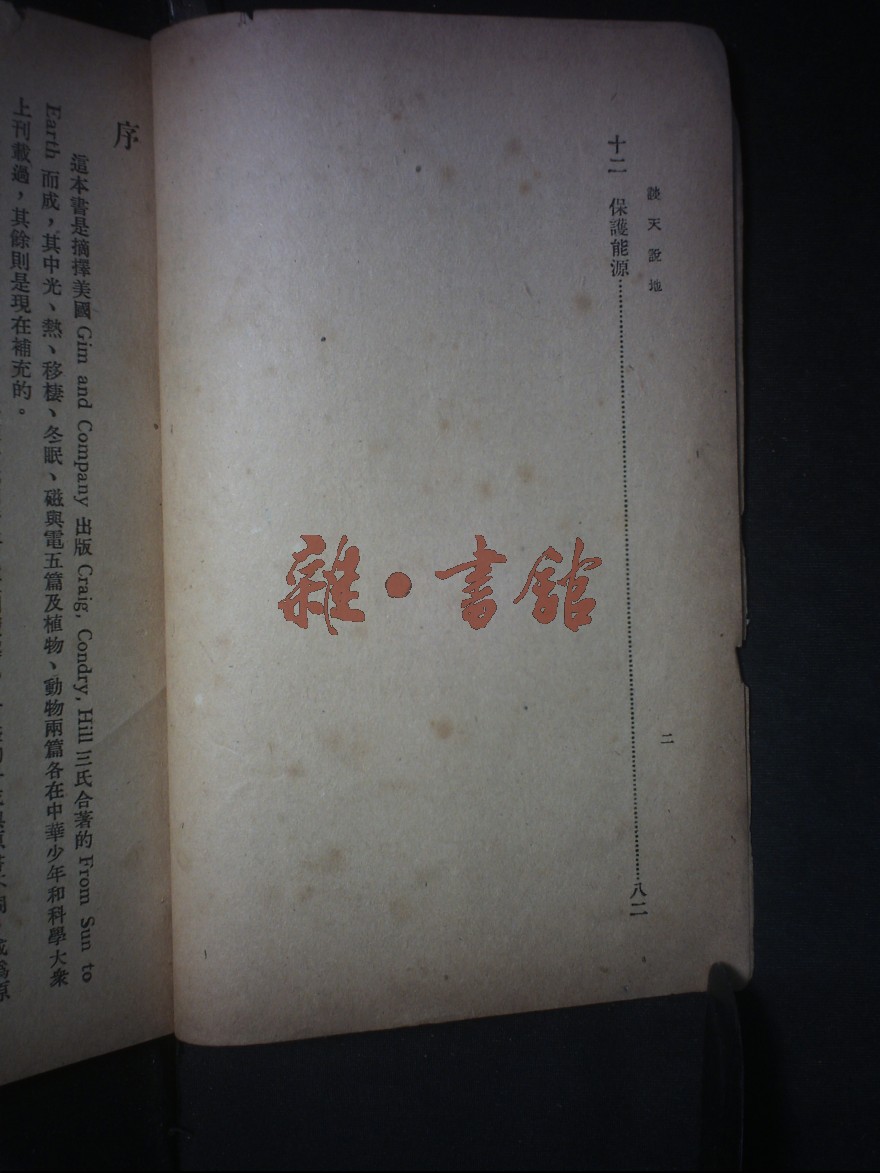 談天說地
十二 保護能源……八二
二
雜·書館
序
這本書是摘擇美國 Gim and Company 出版 Craig, Condry, Hill 三氏合著的 From Sun to
Earth 而成，其中光、熱、移棲、冬眠、磁與電五篇及植物、動物兩篇各在中華少年和科學大衆
上刊載過，其餘則是現在補充的。